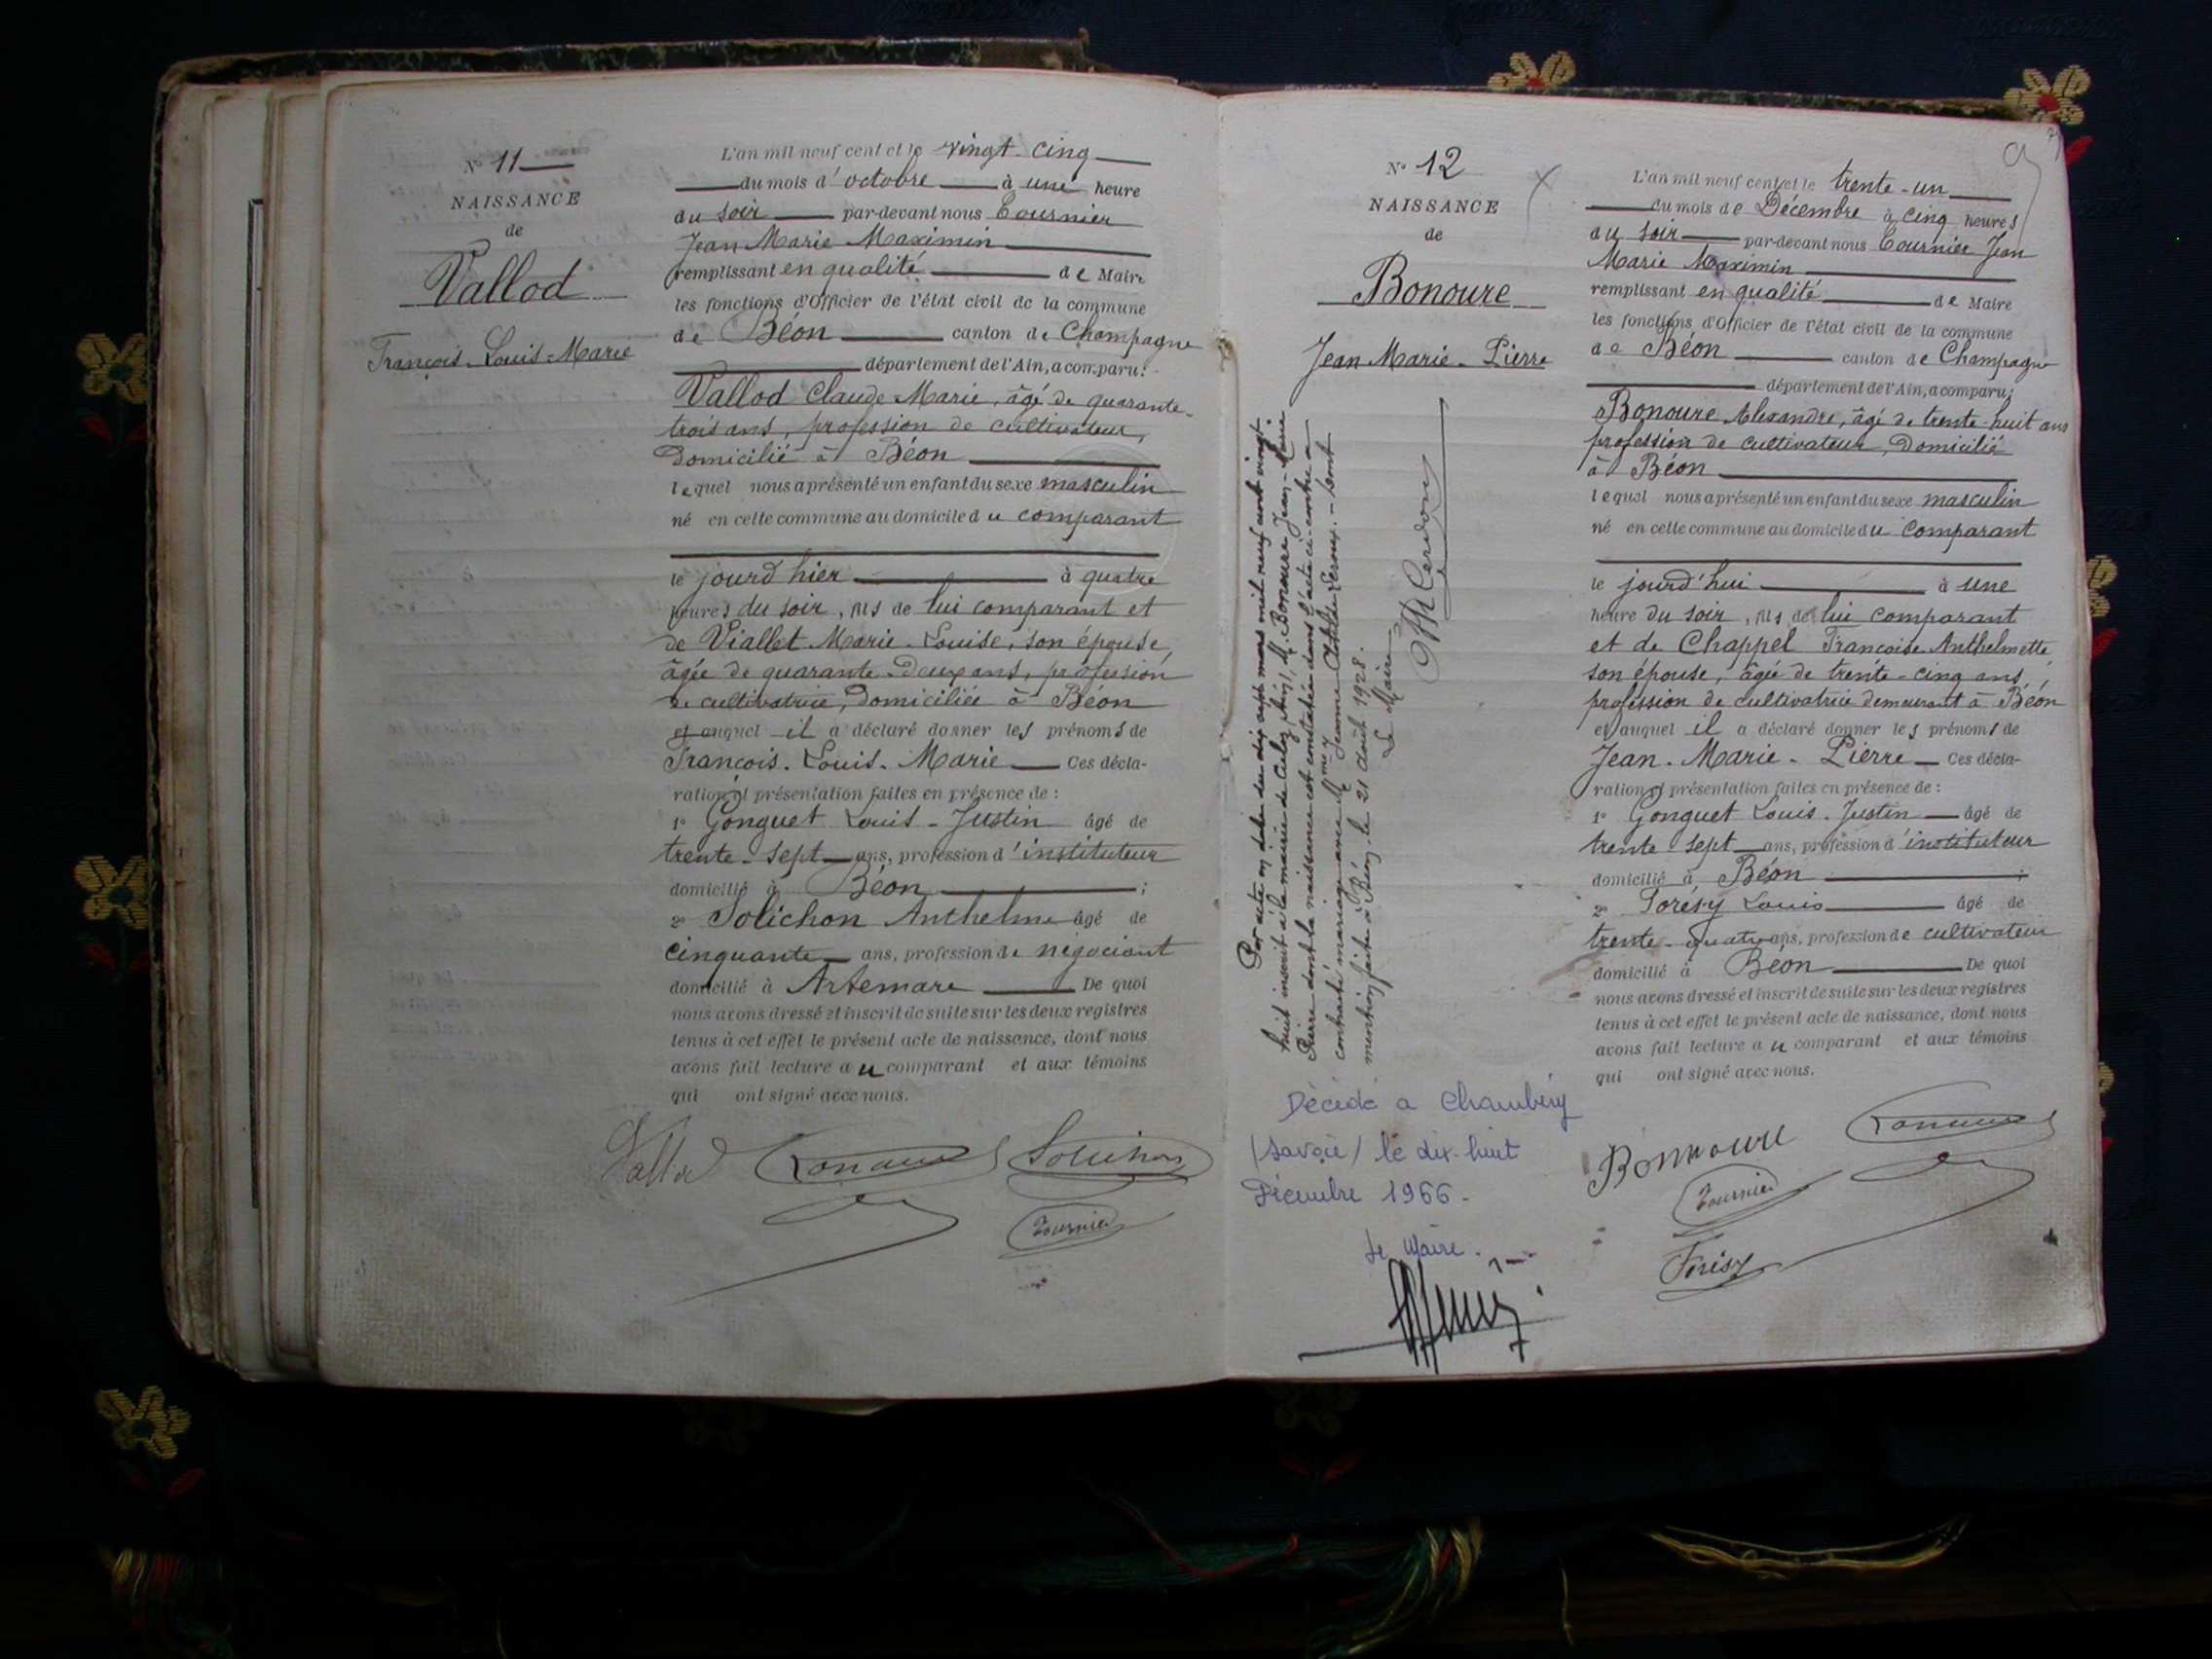 N° 11
NAISSANCE
de
Vallod
François-Louis-Marie
L'an mil neuf cent et le vingt-cinq
du mois d'octobre à une heure
du soir par-devant nous Tournier
Jean Marie Maximin
remplissant en qualité de Maire
les fonctions d'Officier de l'état civil de la commune
de Béon canton de Champagne
département de l'Ain, a comparu:
Vallod Claude Marie, âgé de quarante-
trois ans, profession de cultivateur,
domicilié à Béon
lequel nous a présenté un enfant du sexe masculin
né en cette commune au domicile du comparant
le jourd'hier à quatre
heures du soir, fils de lui comparant et
de Viallet Marie-Louise, son épouse,
âgée de quarante-deux ans, profession
de cultivatrice, domiciliée à Béon
et auquel il a déclaré donner les prénoms de
François-Louis-Marie Ces décla-
ration et présentation faites en présence de :
1° Gonguet Louis-Justin âgé de
trente-sept ans, profession d'instituteur
domicilié à Béon ;
2° Solichon Anthelme âgé de
cinquante ans, profession de négociant
domicilié à Artemare De quoi
nous avons dressé et inscrit de suite sur les deux registres
tenus à cet effet le présent acte de naissance, dont nous
avons fait lecture au comparant et aux témoins
qui ont signé avec nous.
Vallod
Tournier
N° 12
NAISSANCE
de
Bonoure
Jean-Marie-Pierre
Par acte en date du dix sept mars mil neuf cent vingt-
huit inscrit à la mairie de Culoz (Ain), M. Bonoure Jean-Marie
Pierre dont la naissance est constatée dans l'acte ci-contre a
contracté mariage avec Mme Jeanne Leroux. - Dont
mention faite à Béon, le 21 août 1928.
Le Maire
Décédé à Chambéry
(Savoie) le dix-huit
Décembre 1966.
Le Maire.
L'an mil neuf cent et le trente-un
du mois de Décembre à cinq heures
du soir par-devant nous Tournier Jean
Marie Maximin
remplissant en qualité de Maire
les fonctions d'Officier de l'état civil de la commune
de Béon canton de Champagne
département de l'Ain, a comparu:
Bonoure Alexandre, âgé de trente-huit ans
profession de cultivateur, domicilié
à Béon
lequel nous a présenté un enfant du sexe masculin
né en cette commune au domicile du comparant
le jourd'hui à une
heure du soir, fils de lui comparant
et de Chappel Françoise Anthelmette
son épouse, âgée de trente-cinq ans,
profession de cultivatrice demeurant à Béon
et auquel il a déclaré donner les prénoms de
Jean-Marie-Pierre Ces décla-
ration et présentation faites en présence de :
1° Gonguet Louis-Justin âgé de
trente-sept ans, profession d'instituteur
domicilié à Béon ;
2° Forésy Louis âgé de
trente-quatre ans, profession de cultivateur
domicilié à Béon De quoi
nous avons dressé et inscrit de suite sur les deux registres
tenus à cet effet le présent acte de naissance, dont nous
avons fait lecture au comparant et aux témoins
qui ont signé avec nous.
Bonnoure
Tournier